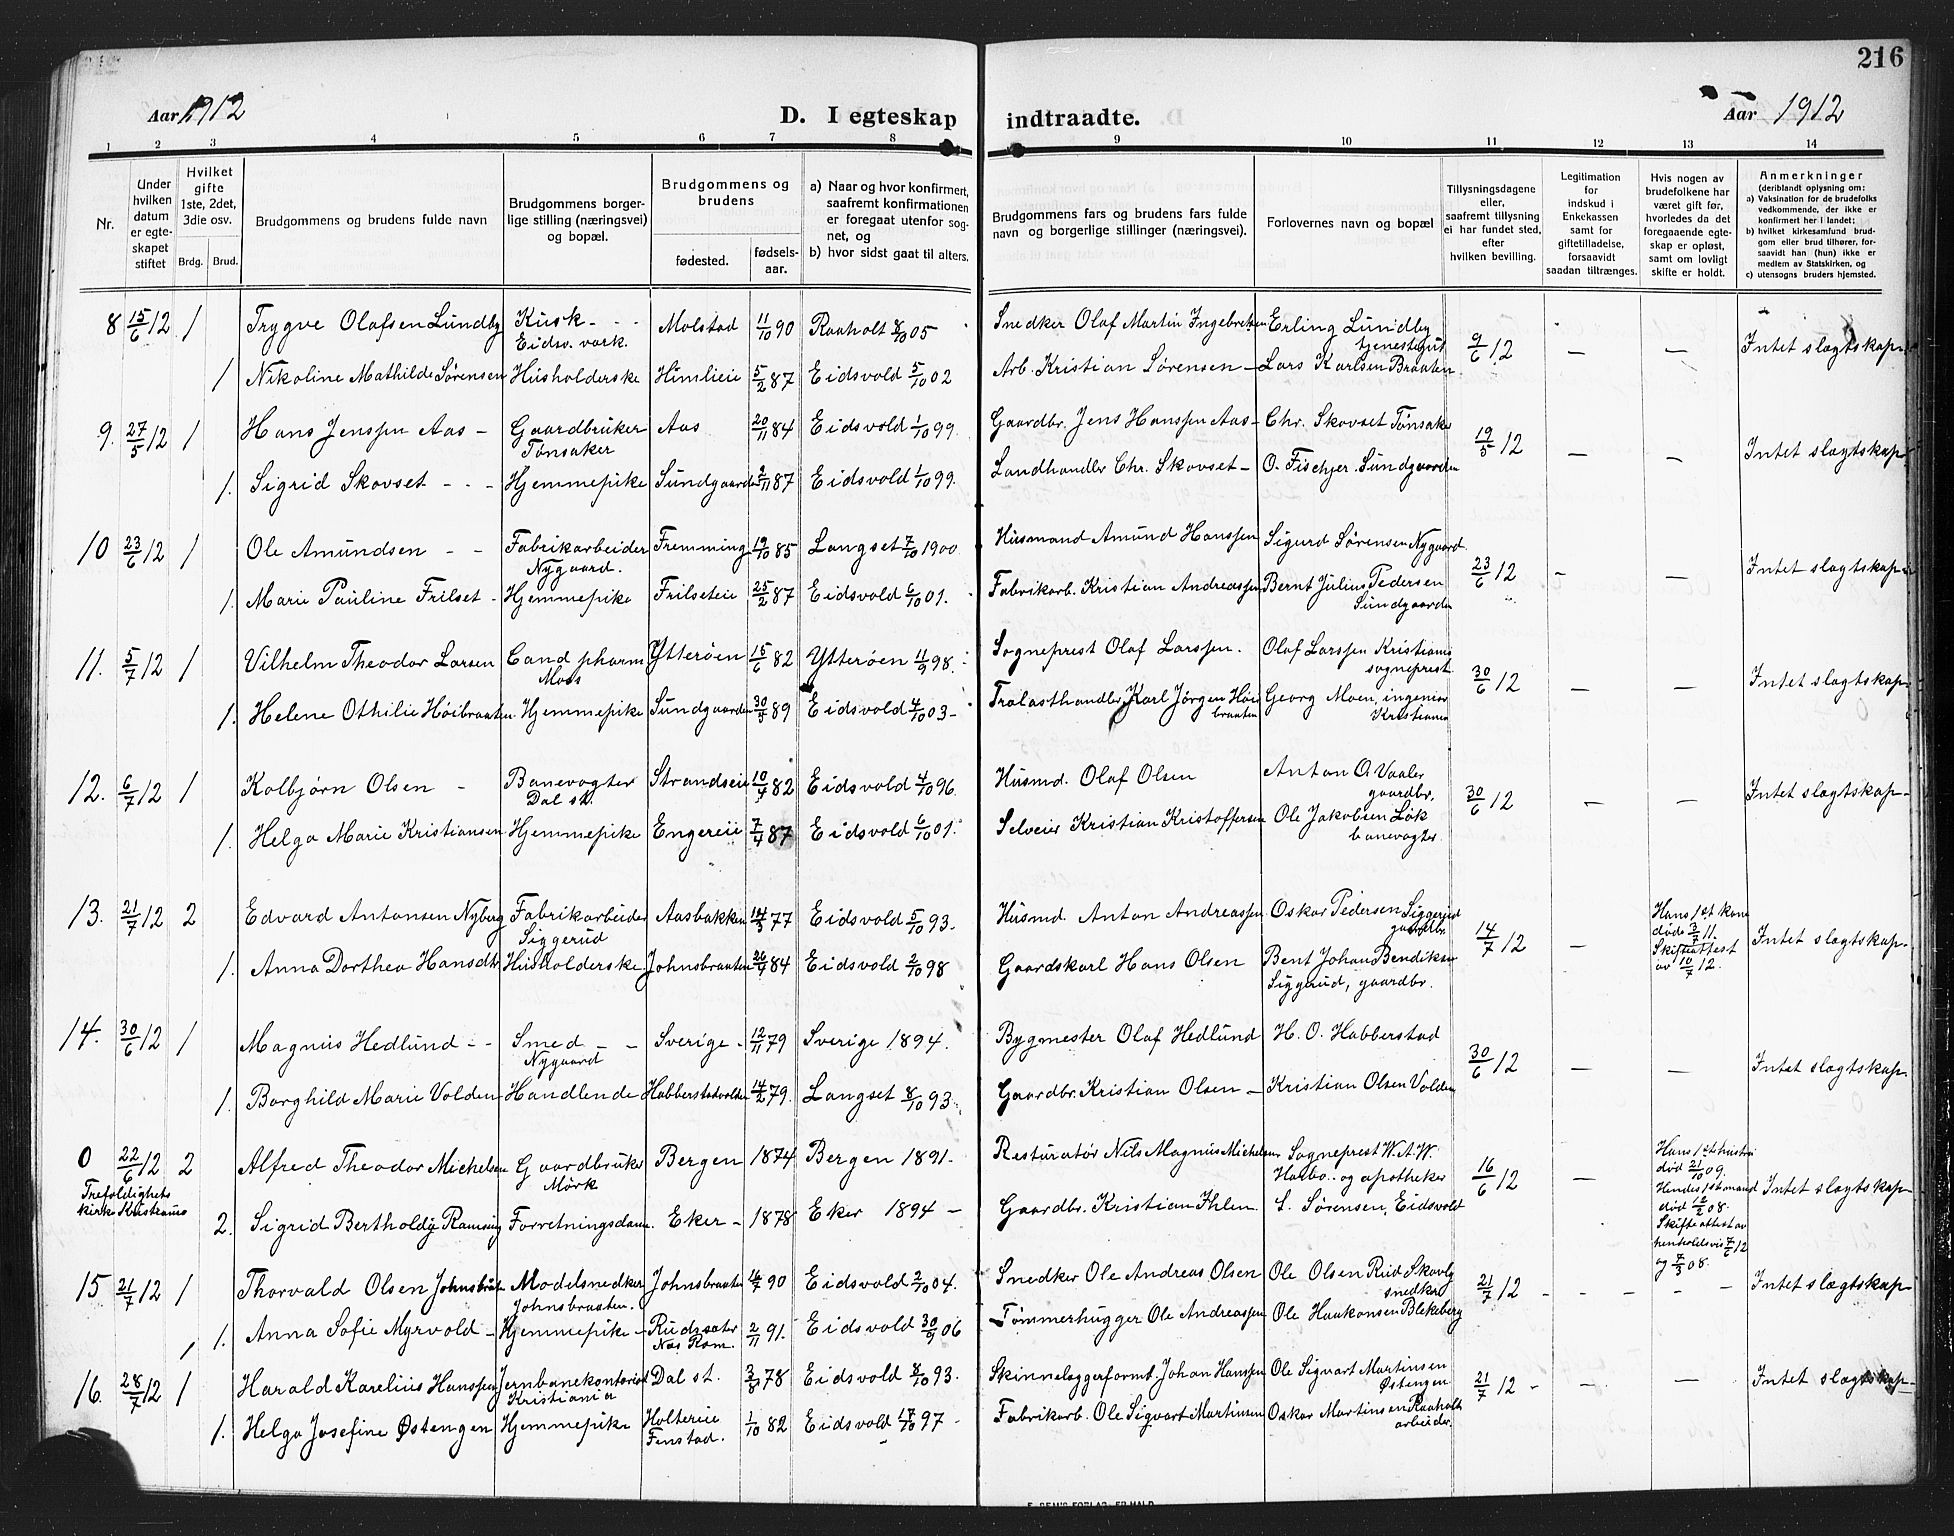 216
Aar 1912
D. I egteskap indtraadte.
Aar 1912
1 2 3 4 5 6 7 8 9 10 11 12 13 14
Nr.
Under hvilken datum er egteskapet stiftet
Hvilket gifte 1ste, 2det, 3die osv.
Brdg. Brud.
Brudgommens og brudens fulde navn
Brudgommens borgerlige stilling (næringsvei) og bopæl.
Brudgommens og brudens
fødested. fødselsaar.
a) Naar og hvor konfirmert, saafremt konfirmationen er foregaat utenfor sognet, og
b) hvor sidst gaat til alters.
Brudgommens fars og brudens fars fulde navn og borgerlige stillinger (næringsvei).
Forlovernes navn og bopæl
Tillysningsdagene eller, saafremt tillysning ei har fundet sted, efter hvilken bevilling.
Legitimation for indskud i Enkekassen samt for giftetilladelse, forsaavidt saadan tiltrænges.
Hvis nogen av brudefolkene har været gift før, hvorledes da det foregaaende egteskap er opløst, samt om lovligt skifte er holdt.
Anmerkninger
(deriblandt oplysning om:
a) Vaksination for de brudefolks vedkommende, der ikke er konfirmert her i landet;
b) hvilket kirkesamfund brudgom eller brud tilhører, forsaavidt han (hun) ikke er medlem av Statskirken, og
c) utensogns bruders hjemsted.
8 15/6 12 1 Trygve Olafsen Lundby Kusk - - Eidsv. værk. Molstad 11/10 90 Raaholt 8/10 05 Snedker Olaf Martin Ingebretsen Erling Lundby tjenestegut 9/6 12 — — Intet slægtskap
1 Nikoline Mathilde Sørensen Husholderske Himlieie 5/2 87 Eidsvold 5/10 02 Arb. Kristian Sørensen — Lars Karlsen Braaten
9. 27/5 12 1 Hans Jenssen Aas - Gaardbruker Tønsaker Aas 20/11 84 Eidsvold 1/10 99. Gaardbr. Jens Hanssen Aas - Chr. Skovset Tønsaker 19/5 12 — — Intet slægtskap
1. Sigrid Skovset - - - Hjemmepike Sundgaarden 2/11 87 Eidsvold 1/10 99. Landhandler Chr. Skovset - O. Fischer. Sundgaarden
10 23/6 12 1 Ole Amundsen - - Fabrikarbeider Nygaard. Fremming 19/10 85 Langset 7/10 1900 Husmand Amund Hanssen Sigurd Sørensen Nygaard 23/6 12 - — Intet slægtskap
1. Marie Pauline Frilset - Hjemmepike Frilseteie 25/2 87 Eidsvold 6/10 01. Fabrikarb. Kristian Andreassen Bernt Julius Pedersen Sundgaarden
11. 5/7 12 1 Vilhelm Theodor Larsen Cand pharm Moss Ytterøen 15/6 82 Ytterøen 11/9 98. Sogneprest Olaf Larssen. Olaf Larssen Kristians sogneprest 30/6 12 — — Intet slægtskap
1. Helene Othilie Høibraaten Hjemmepike Sundgaarden 89 Eidsvold 4/10 03 - Trælasthandler Karl Jørgen Høibraaten Georg Moen, ingeniør Kristiania
12. 6/7 12 1 Kolbjørn Olsen - Banevogter Dal st. Strandseie 82 Eidsvold 4/10 96. Husmd. Olaf Olsen Anton O. Vaaler gaardbr. 30/6 12 — — Intet slægtskap -
1. Helga Marie Kristiansen Hjemmepike Engereie 7/4 87 Eidsvold 6/10 01. Selveier Kristian Kristoffersen Ole Jakobsen Løk banevogter
13. 21/7 12 2 Edvard Antonsen Nyberg Fabrikarbeider Siggerud Aasbakken 77 Eidsvold 5/10 93. Husmd. Anton Andreassen Oskar Pedersen Siggerud gaardbr. 14/7 12 — Hans 1st kone døde 11. Skifteattest av 10/7 12. Intet slægtskap.
1. Anna Dorthea Hansdtr Husholderske Johnsbraaten 84 Eidsvold 2/10 98 Gaardskarl Hans Olsen Bent Johan Bendiksen Siggerud, gaardbr.
14. 30/6 12 1 Magnus Hedlund - - Smed - - Nygaard Sverige - 12/11 79 Sverige 1894. Bygmester Olaf Hedlund H. O. Habberstad 30/6 12 — — Intet slægtskap
1. Borghild Marie Volden Handlende Habberstadvolden 14/2 79. Langset 8/10 93. Gaardbr. Kristian Olsen — Kristian Olsen Volden
0 22/6 12 2 Alfred Theodor Michelsen Gaardbruker Mørk Bergen 1874 Bergen 1891. Resturatør Nils Magnus Michelsen Sogneprest W. A. W. Harbo. og apotheker 16/6 12 — Hans 1ste hustru død 21/10 09. Hendes 1ste mand død 12/2 08. Skifteattest av henholdsvis 7/6 12 og 7/3 08. Intet slægtskap
Trefoldighets kirke Kristiania
2. Sigrid Bertholdg Ramsing Forretningsdame. Eker - 1878 Eker 1894 - Gaardbr. Kristian Ihlen S. Sørensen, Eidsvold
15 21/7 12 1 Thorvald Olsen Johnsbråten Modelsnedker Johnsbraaten. Johnsbraaten 90 Eidsvold 2/10 04. Snedker Ole Andreas Olsen Ole Olsen Rud Skovlg snedker 21/7 12 - - - - Intet slægtskap
1. Anna Sofie Myrvold - Hjemmepike - Rudssæter 2/11 91. Eidsvold 30/9 06 Tømmerhugger Ole Andreassen Ole Haakonsen Blekeberg
16. 28/7 12 1 Harald Karelius Hanssen Jernbanekontorist Kristiania Dal st. 3/8 78 Eidsvold 8/10 93. Skinnelæggerformt. Johan Hanssen Ole Sigvart Martinsen Østengen 21/7 12 - - — Intet slægtskap
1. Helga Josefine Østengen Hjemmepike Holtereie Fenstad. 1/10 82 Eidsvold 17/10 97 - Fabrikarb. Ole Sigvart Martinsen Oskar Martinsen Raaholt arbeider.